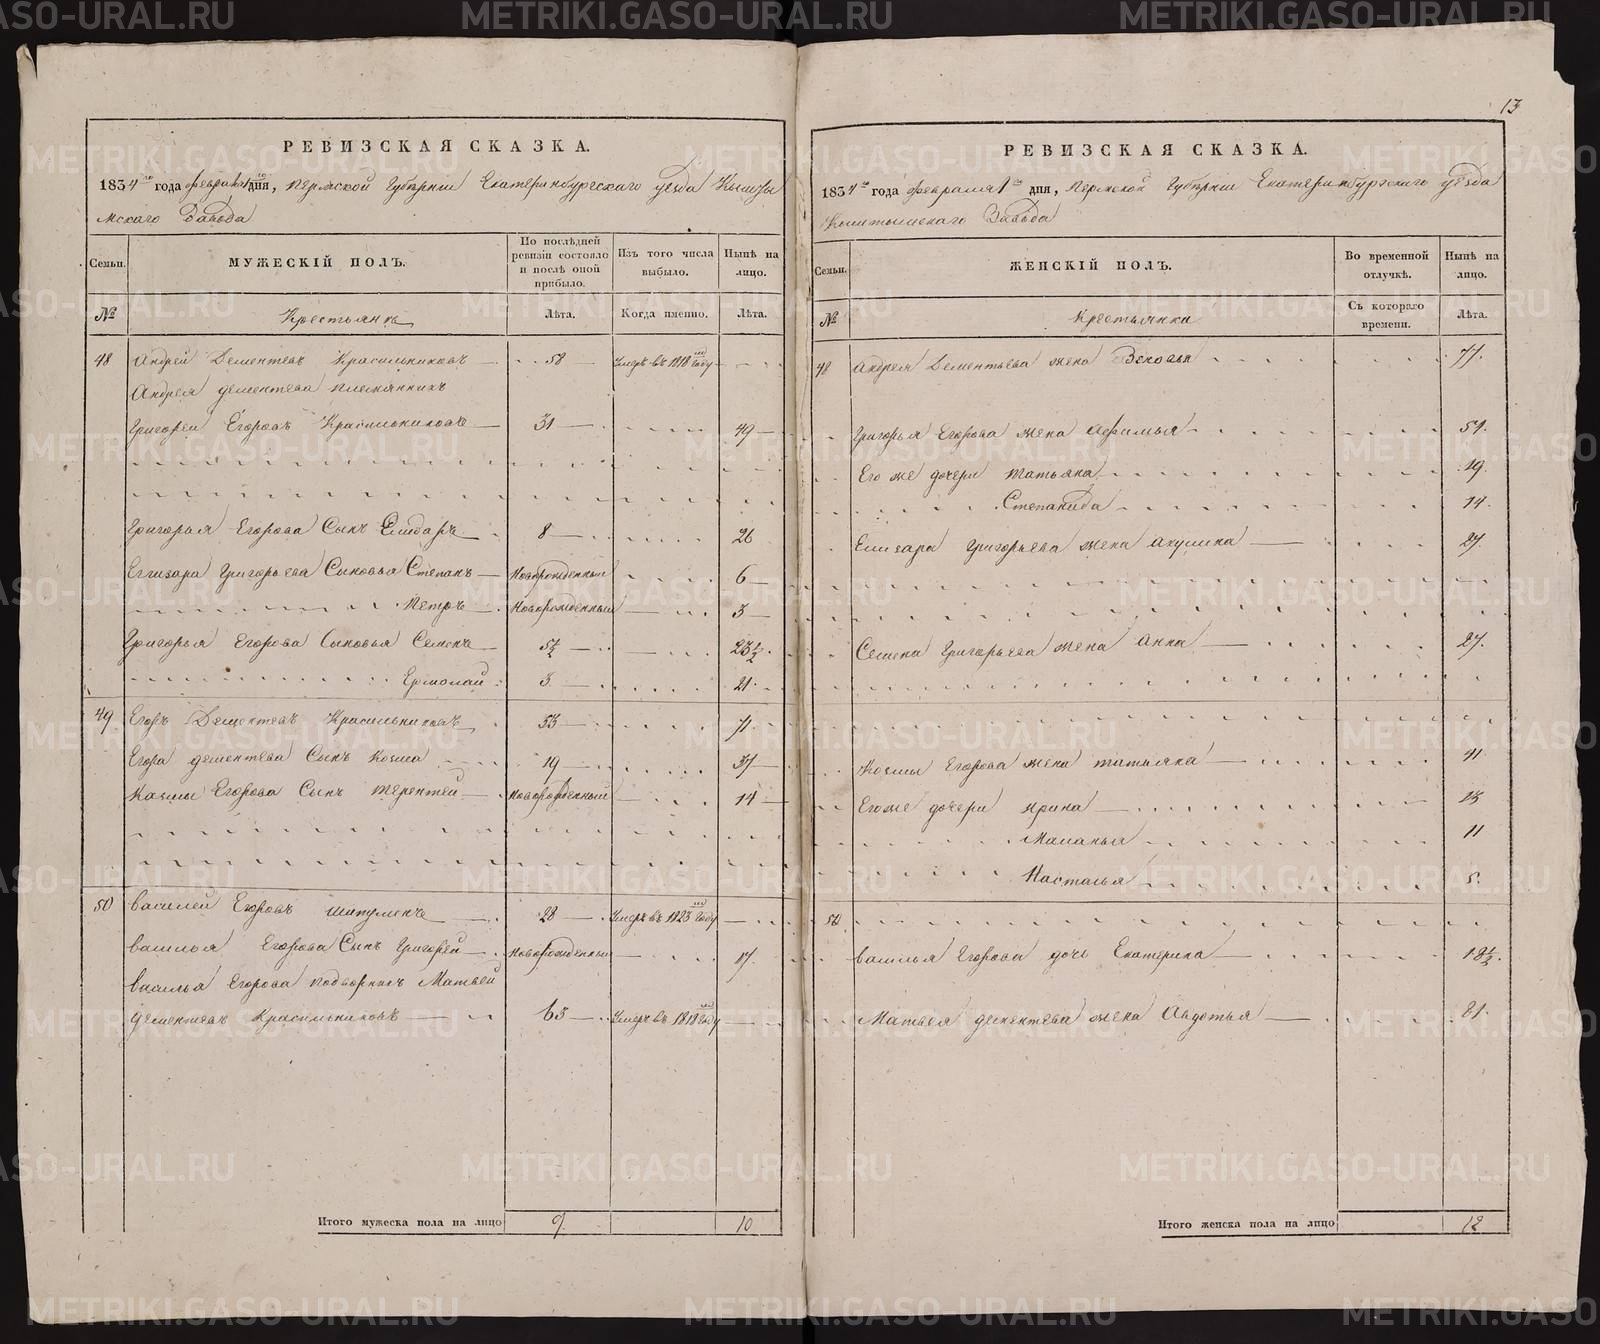 13
РЕВИЗСКАЯ СКАЗКА.
1834го года февраля 1го дня, Пермской Губѣрнiи Екатеринбургскаго уѣзда Кышты
мскаго Завода
Семьи.
МУЖЕСКIЙ ПОЛЪ.
По послѣдней ревизiи состояло и послѣ оной прибыло.
Изъ того числа выбыло.
Нынѣ на лицо.
№
Крестьянѣ
Лѣта.
Когда именно.
Лѣта.
48 Андрей Дементевъ Красильниковъ 58 Умеръ въ 1818мъ Году
Андрея дементева племянникъ
Григорей Егоровъ Красильниковъ 31 49
Григорья Егорова Сынъ Елизаръ 8 26
Елизара Григорьева Сыновья Степанъ Новорожденный 6
Петръ Новорожденный 3
Григорья Егорова Сыновья Семенъ 5½ 23½
Ермолай 3 21
49 Егоръ Дементевъ Красильниковъ 53 71
Егора дементева Сынъ Козма 19 37
Козмы Егорова Сынъ Терентей Новорожденный 14
50 Василей Егоровъ 28 Умеръ въ 1823мъ Году
Василья Егорова Сынъ Григорей Новорожденный 17
Василья Егорова подворникъ Матвей
Дементевъ Красильниковъ 63 Умеръ въ 1818мъ Году
Итого мужеска пола на лицо 9 10
РЕВИЗСКАЯ СКАЗКА.
1834го года февраля 1го дня, Пермской Губѣрнiи Екатеринбургскаго уѣзда
Кыштымскаго Завода
Семьи.
ЖЕНСКIЙ ПОЛЪ.
Во временной отлучкѣ.
Нынѣ на лицо.
№
Крестьянки
Съ котораго времени.
Лѣта.
48 Андрея Дементьева жена 77.
Григорья Егорова жена Афимья 51.
Его же дочери Татьяна 19.
Степанида 14.
Елизара Григорьева жена Акулина 27.
Семена Григорьева жена Анна 27.
Козмы Егорова жена Татьяна 41
Его же дочери Ирина 13
Маланья 11
Настасья 5.
50
Василья Егорова дочь Екатерина 18½.
Матвея дементева жена Авдотья 81.
Итого женска пола на лицо 12
METRIKI.GASO-URAL.RU